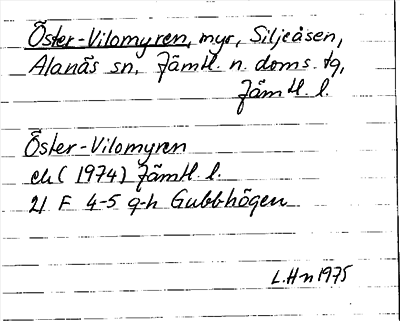 Öster-Vilomyren, myr, Siljeåsen,
Alanäs sn, Jämtl. n. doms. tg,
Jämtl. l.
Öster-Vilomyren
ek (1974) Jämtl. l.
21 F 4-5 g-h Gubbhögen
L.H-n 1975